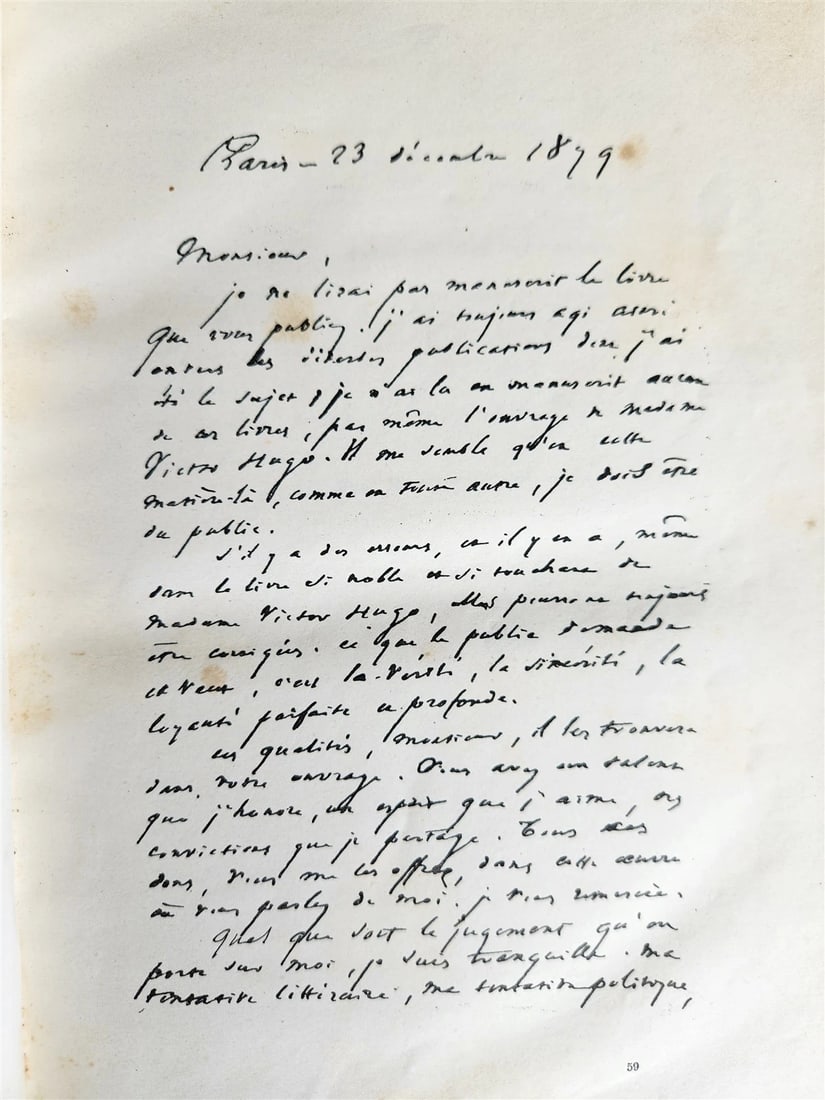 Paris – 23 décembre 1879
Monsieur,
je ne lirai pas manuscrit le livre
que vous publiez. j'ai toujours agi ainsi
envers les diverses publications dont j'ai
été le sujet ; je n'ai lu en manuscrit aucun
de ces livres, pas même l'ouvrage de Madame
Victor Hugo. Il me semble qu'en cette
matière-là, comme en toute autre, je dois être
du public.
S'il y a des erreurs, et il y en a, même
dans le livre si noble et si touchant de
madame Victor Hugo, elles pourront toujours
être corrigées. ce que le public demande
et veut, c'est la vérité, la sincérité, la
loyauté parfaite et profonde.
ces qualités, monsieur, il les trouvera
dans votre ouvrage. Vous avez un talent
que j'honore, un esprit que j'aime, des
convictions que je partage. Tous ces
dons, vous me les offrez, dans cette œuvre
où vous parlez de moi. je vous remercie.
Quel que soit le jugement qu'on
porte sur moi, je suis tranquille. ma
tentative littéraire, ma tentative politique,
59